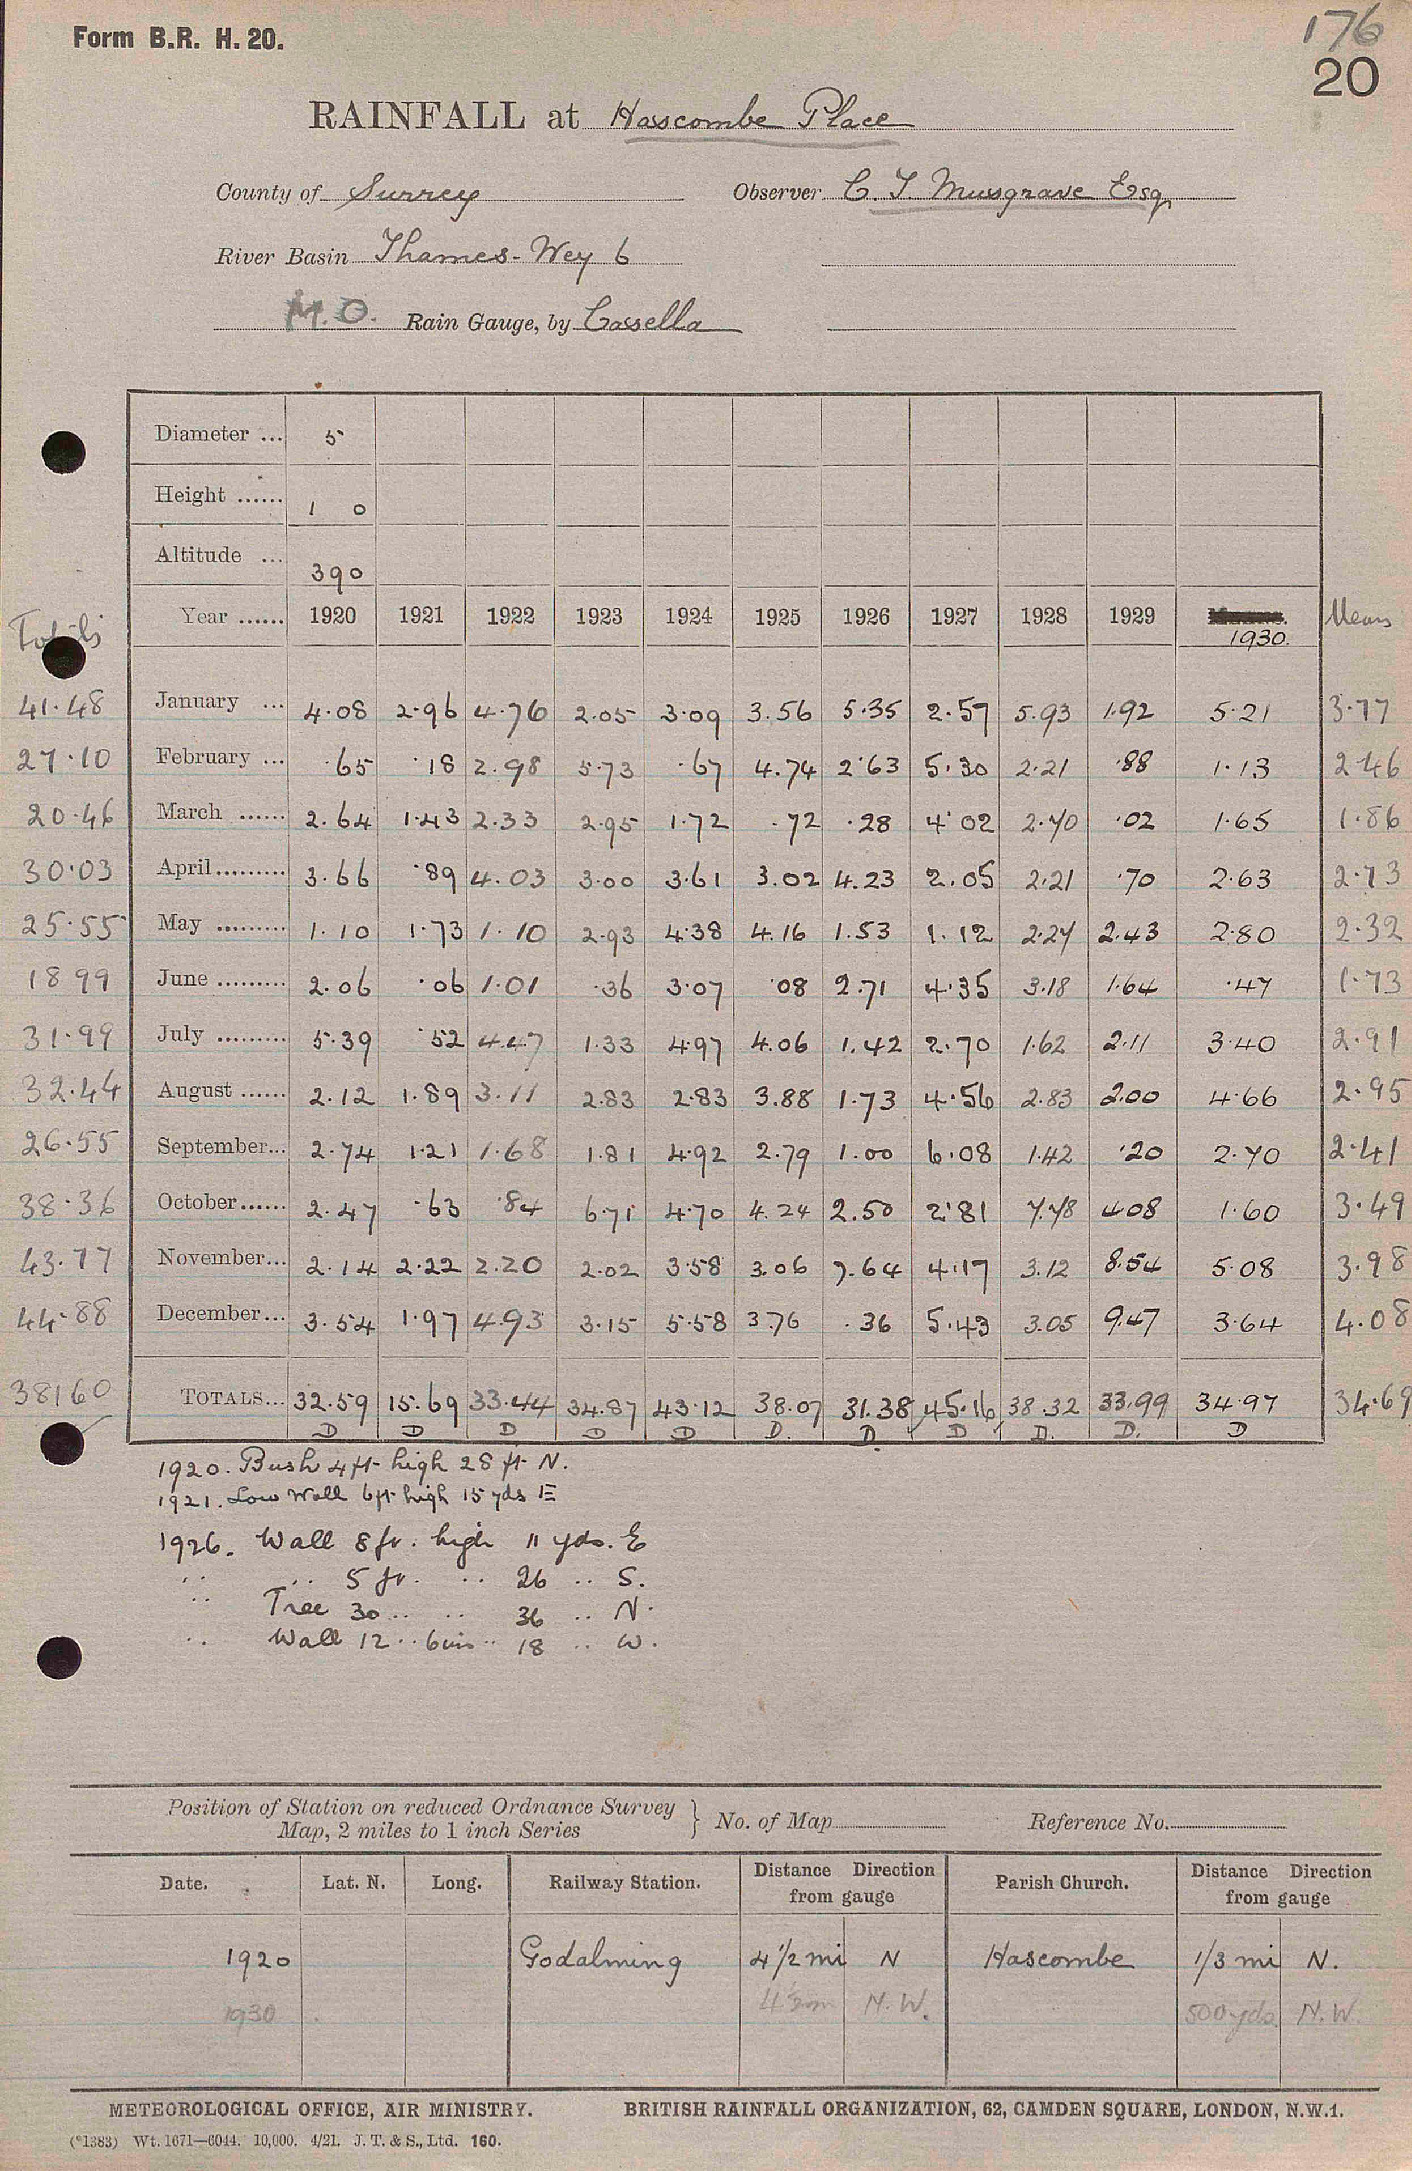 Form B.R. H. 20.
176
20
RAINFALL at Hascombe Place
County of Surrey Observer C. T. Musgrave Esq
River Basin Thames - Wey 6
M.O. Rain Gauge, by Cassella
Diameter ... 5
Height ...... 1 0
Altitude ... 390
Totals Year ...... 1920 1921 1922 1923 1924 1925 1926 1927 1928 1929 1930. Mean
41.48 January ... 4.08 2.96 4.76 2.05 3.09 3.56 5.35 2.57 5.93 1.92 5.21 3.77
27.10 February ... .65 .18 2.98 5.73 .67 4.74 2.63 5.30 2.21 .88 1.13 2.46
20.46 March ...... 2.64 1.43 2.33 2.95 1.72 .72 .28 4.02 2.70 .02 1.65 1.86
30.03 April ......... 3.66 .89 4.03 3.00 3.61 3.02 4.23 2.05 2.21 .70 2.63 2.73
25.55 May ......... 1.10 1.73 1.10 2.93 4.38 4.16 1.53 1.12 2.27 2.43 2.80 2.32
18 99 June ......... 2.06 .06 1.01 .36 3.07 .08 2.71 4.35 3.18 1.64 .47 1.73
31.99 July ......... 5.39 .52 4.47 1.33 4.97 4.06 1.42 2.70 1.62 2.11 3.40 2.91
32.44 August ...... 2.12 1.89 3.11 2.83 2.83 3.88 1.73 4.56 2.83 2.00 4.66 2.95
26.55 September... 2.74 1.21 1.68 1.81 4.92 2.79 1.00 6.08 1.42 .20 2.70 2.41
38.36 October...... 2.47 .63 .84 6.71 4.70 4.24 2.50 2.81 7.78 4.08 1.60 3.49
43.77 November... 2.14 2.22 2.20 2.02 3.58 3.06 7.64 4.17 3.12 8.54 5.08 3.98
44.88 December... 3.54 1.97 4.93 3.15 5.58 3.76 .36 5.43 3.05 9.47 3.64 4.08
381 60 TOTALS... 32.59 15.69 33.44 34.87 43.12 38.07 31.38 45.16 38.32 33.99 34.97 34.69
D D D D D D. D D D. D. D
1920. Bush 4ft high 28 ft N.
1921. Low Wall 6ft high 15 yds E
1926. Wall 8 ft. high 11 yds. E
.. .. 5 ft. .. 26 .. S.
.. Tree 30 .. .. 36 .. N.
.. Wall 12 .. 6ins .. 18 .. W.
Position of Station on reduced Ordnance Survey
Map, 2 miles to 1 inch Series } No. of Map Reference No.
Date. Lat. N. Long. Railway Station. Distance from gauge Direction Parish Church. Distance from gauge Direction
1920 Godalming 4 1/2 mi N Hascombe 1/3 mi N.
1930 4 1/2 m N.W. 500 yds. N.W.
METEOROLOGICAL OFFICE, AIR MINISTRY. BRITISH RAINFALL ORGANIZATION, 62, CAMDEN SQUARE, LONDON, N.W.1.
(*1383) Wt. 1671—6044. 10,000. 4/21. J. T. & S., Ltd. 160.